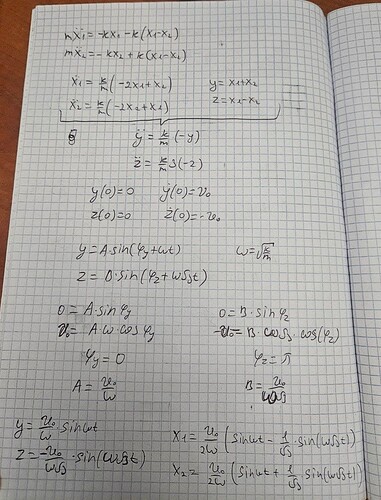 mẍ₁ = -kx₁ - k(x₁-x₂)
mẍ₂ = -kx₂ + k(x₁-x₂)
ẍ₁ = k/m (-2x₁+x₂) y = x₁+x₂
ẍ₂ = k/m (-2x₂+x₁) z = x₁-x₂
ÿ = k/m (-y)
z̈ = k/m 3(-z)
y(0)=0 ẏ(0)=v₀
z(0)=0 ż(0)=-v₀
y = A·sin(φy+ωt) ω=√(k/m)
z = B·sin(φz+ω√3t)
0 = A·sinφy 0 = B·sinφz
v₀ = A·ω·cosφy -v₀ = B·ω√3·cos(φz)
φy = 0 φz = π
A = v₀/ω B = v₀/ω√3
y = v₀/ω · sinωt x₁ = v₀/2ω (sinωt - 1/√3 · sin(ω√3t))
z = -v₀/ω√3 · sin(ω√3t) x₂ = v₀/2ω (sinωt + 1/√3 sin(ω√3t))